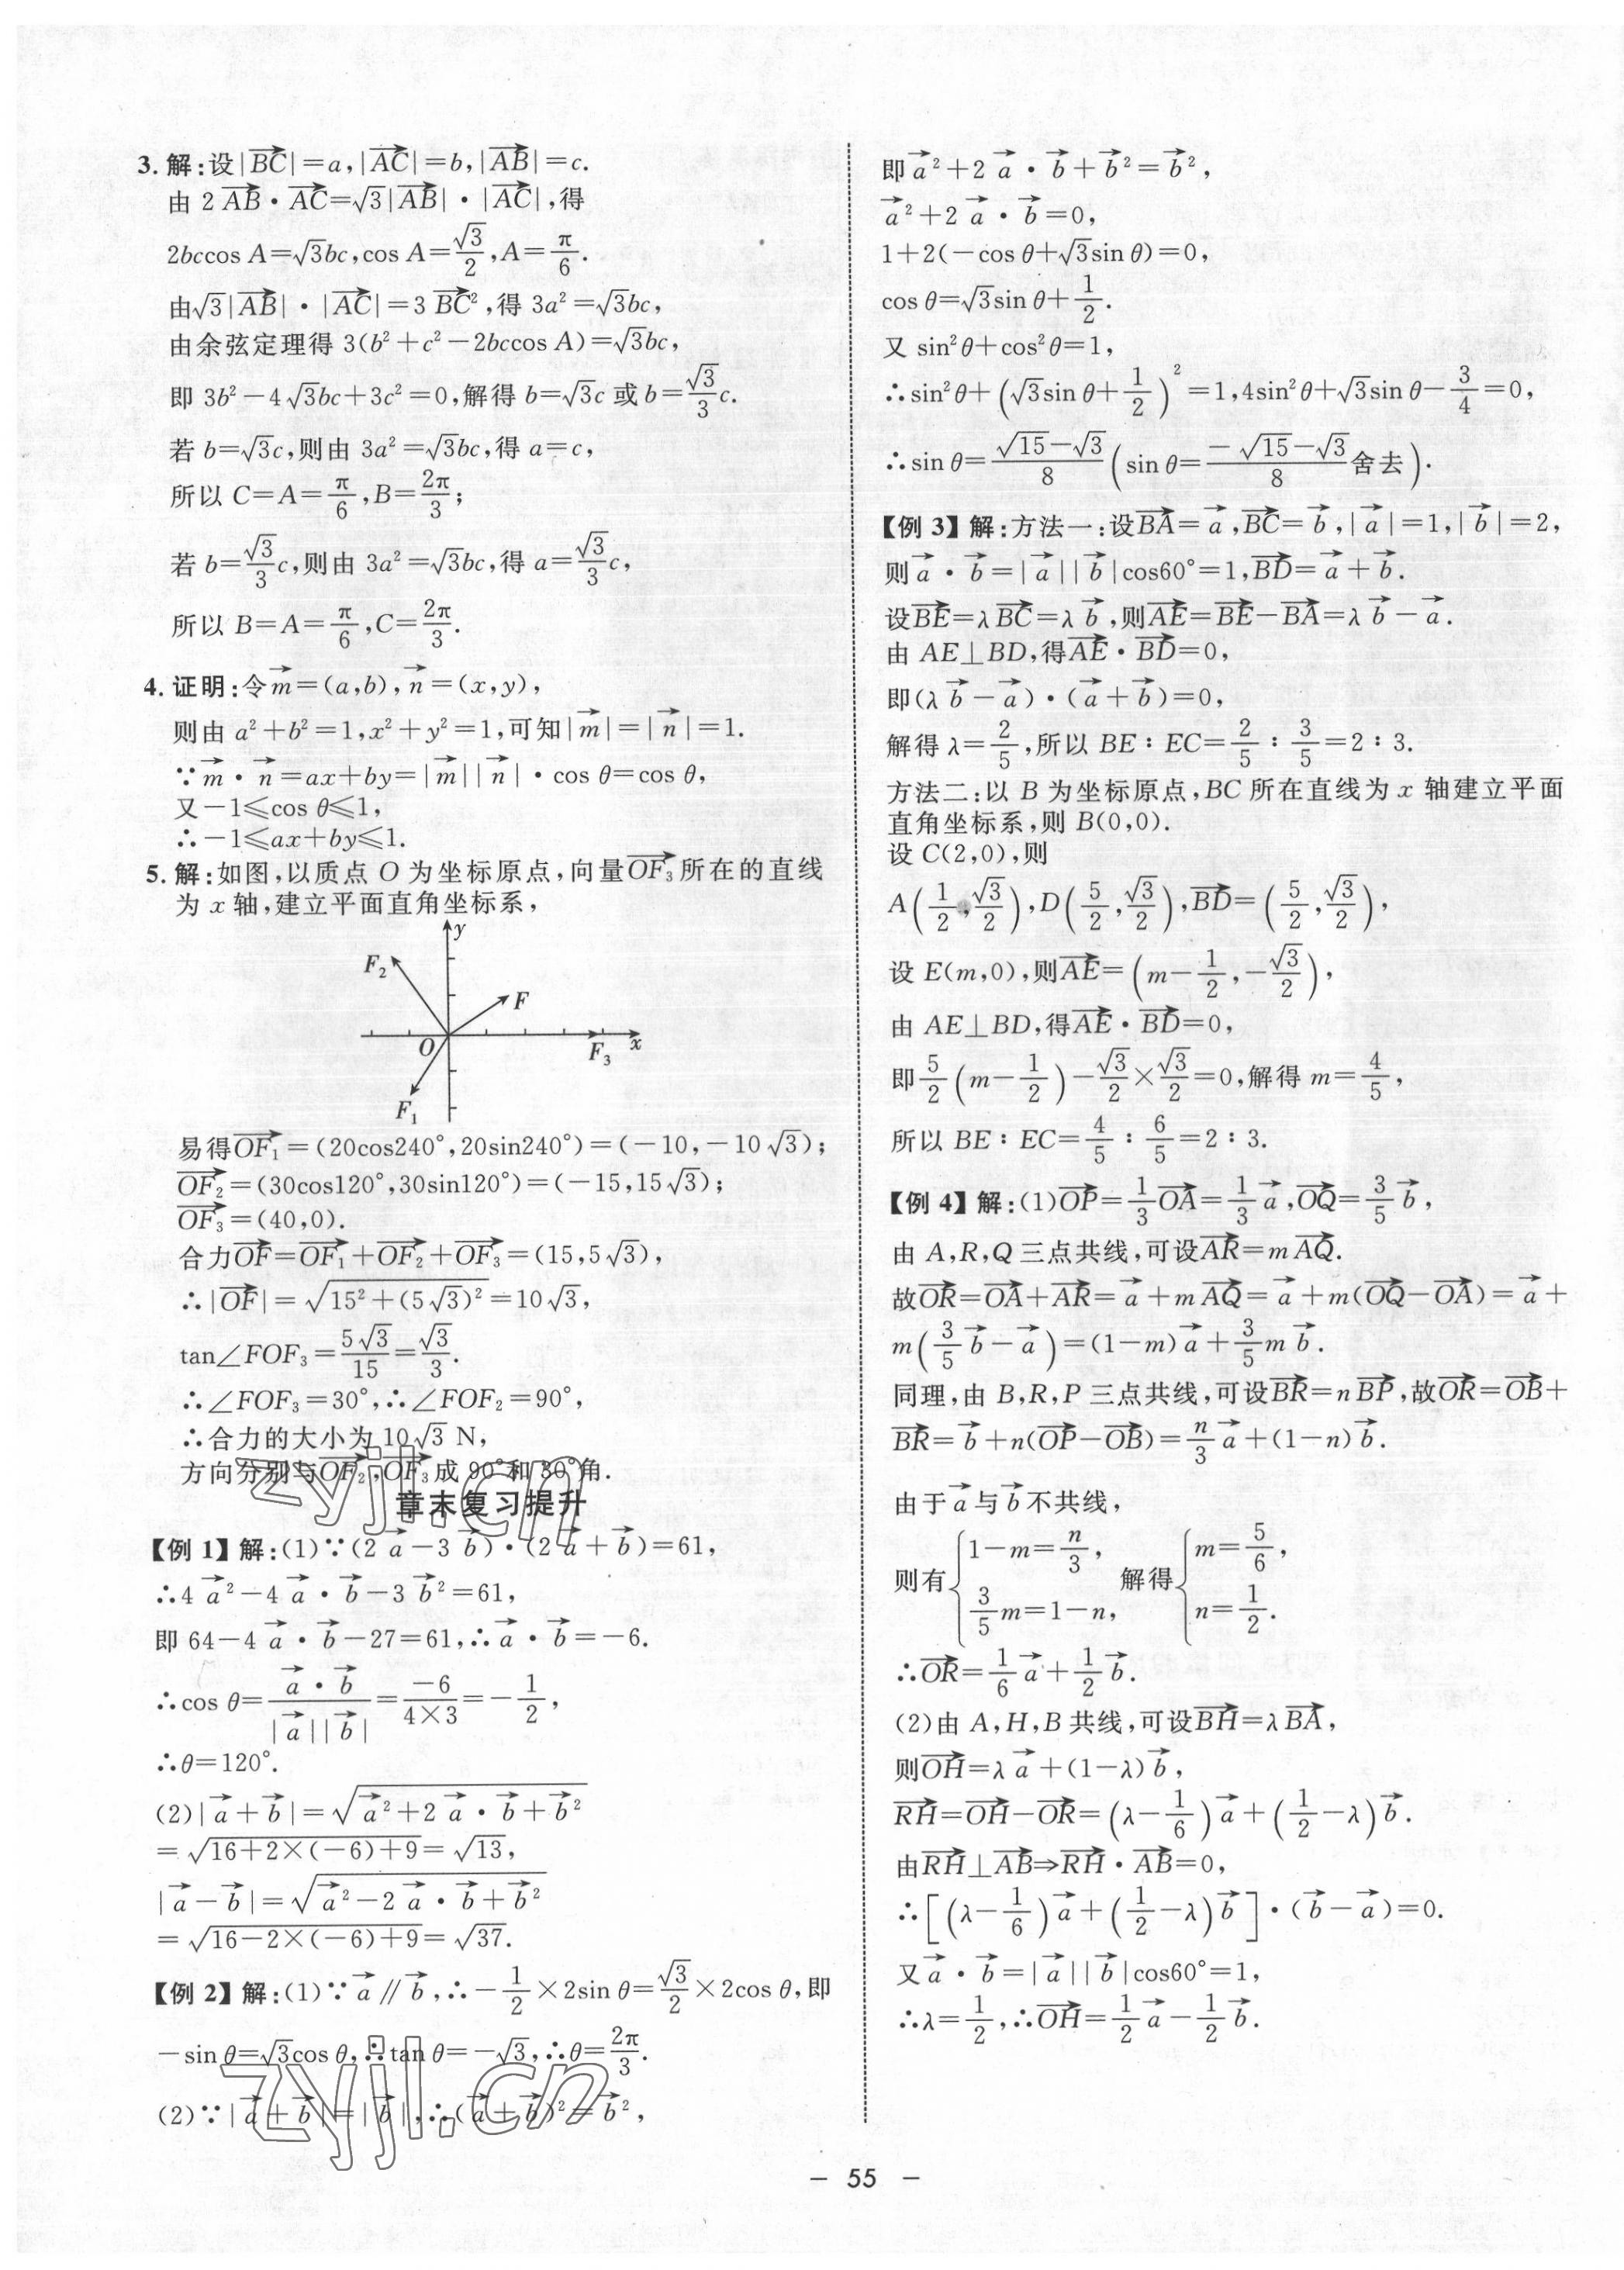 3. 解:设|$\overrightarrow{BC}$|=a,|$\overrightarrow{AC}$|=b,|$\overrightarrow{AB}$|=c.
由 2$\overrightarrow{AB}$·$\overrightarrow{AC}$=√3|$\overrightarrow{AB}$|·|$\overrightarrow{AC}$|,得
2bccos A=√3bc,cos A=$\frac{\sqrt{3}}{2}$,A=$\frac{π}{6}$.
由√3|$\overrightarrow{AB}$|·|$\overrightarrow{AC}$|=3$\overrightarrow{BC}$²,得 3a²=√3bc,
由余弦定理得 3(b²+c²-2bccos A)=√3bc,
即 3b²-4√3bc+3c²=0,解得 b=√3c 或 b=$\frac{\sqrt{3}}{3}$c.
若 b=√3c,则由 3a²=√3bc,得 a=c,
所以 C=A=$\frac{π}{6}$,B=$\frac{2π}{3}$;
若 b=$\frac{\sqrt{3}}{3}$c,则由 3a²=√3bc,得 a=$\frac{\sqrt{3}}{3}$c,
所以 B=A=$\frac{π}{6}$,C=$\frac{2π}{3}$.
4. 证明:令$\vec{m}$=(a,b),$\vec{n}$=(x,y),
则由 a²+b²=1,x²+y²=1,可知|$\vec{m}$|=|$\vec{n}$|=1.
∵$\vec{m}$·$\vec{n}$=ax+by=|$\vec{m}$||$\vec{n}$|·cos θ=cos θ,
又-1≤cos θ≤1,
∴-1≤ax+by≤1.
5. 解:如图,以质点 O 为坐标原点,向量$\overrightarrow{OF_3}$所在的直线
为 x 轴,建立平面直角坐标系,
y
F₂
F
O
F₃
x
F₁
易得$\overrightarrow{OF_1}$=(20cos240°,20sin240°)=(-10,-10√3);
$\overrightarrow{OF_2}$=(30cos120°,30sin120°)=(-15,15√3);
$\overrightarrow{OF_3}$=(40,0).
合力$\overrightarrow{OF}$=$\overrightarrow{OF_1}$+$\overrightarrow{OF_2}$+$\overrightarrow{OF_3}$=(15,5√3),
∴|$\overrightarrow{OF}$|=$\sqrt{15²+(5\sqrt{3})²}$=10√3,
tan∠FOF₃=$\frac{5\sqrt{3}}{15}$=$\frac{\sqrt{3}}{3}$.
∴∠FOF₃=30°,∴∠FOF₂=90°,
∴合力的大小为 10√3 N,
方向分别与$\overrightarrow{OF_2}$,$\overrightarrow{OF_3}$成 90°和 30°角.
zyjl.cn
章末复习提升
【例 1】解:(1)∵(2$\vec{a}$-3$\vec{b}$)·(2$\vec{a}$+$\vec{b}$)=61,
∴4$\vec{a}$²-4$\vec{a}$·$\vec{b}$-3$\vec{b}$²=61,
即 64-4$\vec{a}$·$\vec{b}$-27=61,∴$\vec{a}$·$\vec{b}$=-6.
∴cos θ=$\frac{\vec{a}·\vec{b}}{|\vec{a}||\vec{b}|}$=$\frac{-6}{4×3}$=-$\frac{1}{2}$,
∴θ=120°.
(2)|$\vec{a}$+$\vec{b}$|=$\sqrt{\vec{a}²+2\vec{a}·\vec{b}+\vec{b}²}$
=$\sqrt{16+2×(-6)+9}$=√13,
|$\vec{a}$-$\vec{b}$|=$\sqrt{\vec{a}²-2\vec{a}·\vec{b}+\vec{b}²}$
=$\sqrt{16-2×(-6)+9}$=√37.
【例 2】解:(1)∵$\vec{a}$∥$\vec{b}$,∴-$\frac{1}{2}$×2sin θ=$\frac{\sqrt{3}}{2}$×2cos θ,即
-sin θ=√3cos θ,∴tan θ=-√3,∴θ=$\frac{2π}{3}$.
(2)∵|$\vec{a}$+$\vec{b}$|=|$\vec{b}$|,∴($\vec{a}$+$\vec{b}$)²=$\vec{b}$²,
zyjl.cn
即$\vec{a}$²+2$\vec{a}$·$\vec{b}$+$\vec{b}$²=$\vec{b}$²,
$\vec{a}$²+2$\vec{a}$·$\vec{b}$=0,
1+2(-cos θ+√3sin θ)=0,
cos θ=√3sin θ+$\frac{1}{2}$.
又 sin²θ+cos²θ=1,
∴sin²θ+(√3sin θ+$\frac{1}{2}$)²=1,4sin²θ+√3sin θ-$\frac{3}{4}$=0,
∴sin θ=$\frac{\sqrt{15}-\sqrt{3}}{8}$(sin θ=$\frac{-\sqrt{15}-\sqrt{3}}{8}$舍去).
【例 3】解:方法一:设$\overrightarrow{BA}$=$\vec{a}$,$\overrightarrow{BC}$=$\vec{b}$,|$\vec{a}$|=1,|$\vec{b}$|=2,
则$\vec{a}$·$\vec{b}$=|$\vec{a}$||$\vec{b}$|cos60°=1,$\overrightarrow{BD}$=$\vec{a}$+$\vec{b}$.
设$\overrightarrow{BE}$=λ$\overrightarrow{BC}$=λ$\vec{b}$,则$\overrightarrow{AE}$=$\overrightarrow{BE}$-$\overrightarrow{BA}$=λ$\vec{b}$-$\vec{a}$.
由 AE⊥BD,得$\overrightarrow{AE}$·$\overrightarrow{BD}$=0,
即(λ$\vec{b}$-$\vec{a}$)·($\vec{a}$+$\vec{b}$)=0,
解得 λ=$\frac{2}{5}$,所以 BE∶EC=$\frac{2}{5}$∶$\frac{3}{5}$=2∶3.
方法二:以 B 为坐标原点,BC 所在直线为 x 轴建立平面
直角坐标系,则 B(0,0).
设 C(2,0),则
A($\frac{1}{2}$,$\frac{\sqrt{3}}{2}$),D($\frac{5}{2}$,$\frac{\sqrt{3}}{2}$),$\overrightarrow{BD}$=($\frac{5}{2}$,$\frac{\sqrt{3}}{2}$),
设 E(m,0),则$\overrightarrow{AE}$=(m-$\frac{1}{2}$,-$\frac{\sqrt{3}}{2}$),
由 AE⊥BD,得$\overrightarrow{AE}$·$\overrightarrow{BD}$=0,
即$\frac{5}{2}$(m-$\frac{1}{2}$)-$\frac{\sqrt{3}}{2}$×$\frac{\sqrt{3}}{2}$=0,解得 m=$\frac{4}{5}$,
所以 BE∶EC=$\frac{4}{5}$∶$\frac{6}{5}$=2∶3.
【例 4】解:(1)$\overrightarrow{OP}$=$\frac{1}{3}$$\overrightarrow{OA}$=$\frac{1}{3}$$\vec{a}$,$\overrightarrow{OQ}$=$\frac{3}{5}$$\vec{b}$,
由 A,R,Q 三点共线,可设$\overrightarrow{AR}$=m$\overrightarrow{AQ}$.
故$\overrightarrow{OR}$=$\overrightarrow{OA}$+$\overrightarrow{AR}$=$\vec{a}$+m$\overrightarrow{AQ}$=$\vec{a}$+m($\overrightarrow{OQ}$-$\overrightarrow{OA}$)=$\vec{a}$+
m($\frac{3}{5}$$\vec{b}$-$\vec{a}$)=(1-m)$\vec{a}$+$\frac{3}{5}$m$\vec{b}$.
同理,由 B,R,P 三点共线,可设$\overrightarrow{BR}$=n$\overrightarrow{BP}$,故$\overrightarrow{OR}$=$\overrightarrow{OB}$+
$\overrightarrow{BR}$=$\vec{b}$+n($\overrightarrow{OP}$-$\overrightarrow{OB}$)=$\frac{n}{3}$$\vec{a}$+(1-n)$\vec{b}$.
由于$\vec{a}$与$\vec{b}$不共线,
则有$\begin{cases}1-m=\frac{n}{3},\\\frac{3}{5}m=1-n,\end{cases}$解得$\begin{cases}m=\frac{5}{6},\\n=\frac{1}{2}.\end{cases}$
∴$\overrightarrow{OR}$=$\frac{1}{6}$$\vec{a}$+$\frac{1}{2}$$\vec{b}$.
(2)由 A,H,B 共线,可设$\overrightarrow{BH}$=λ$\overrightarrow{BA}$,
则$\overrightarrow{OH}$=λ$\vec{a}$+(1-λ)$\vec{b}$,
$\overrightarrow{RH}$=$\overrightarrow{OH}$-$\overrightarrow{OR}$=(λ-$\frac{1}{6}$)$\vec{a}$+($\frac{1}{2}$-λ)$\vec{b}$.
由$\overrightarrow{RH}$⊥$\overrightarrow{AB}$⇒$\overrightarrow{RH}$·$\overrightarrow{AB}$=0,
∴[(λ-$\frac{1}{6}$)$\vec{a}$+($\frac{1}{2}$-λ)$\vec{b}$]·($\vec{b}$-$\vec{a}$)=0.
又$\vec{a}$·$\vec{b}$=|$\vec{a}$||$\vec{b}$|cos60°=1,
∴λ=$\frac{1}{2}$,∴$\overrightarrow{OH}$=$\frac{1}{2}$$\vec{a}$-$\frac{1}{2}$$\vec{b}$.
- 55 -